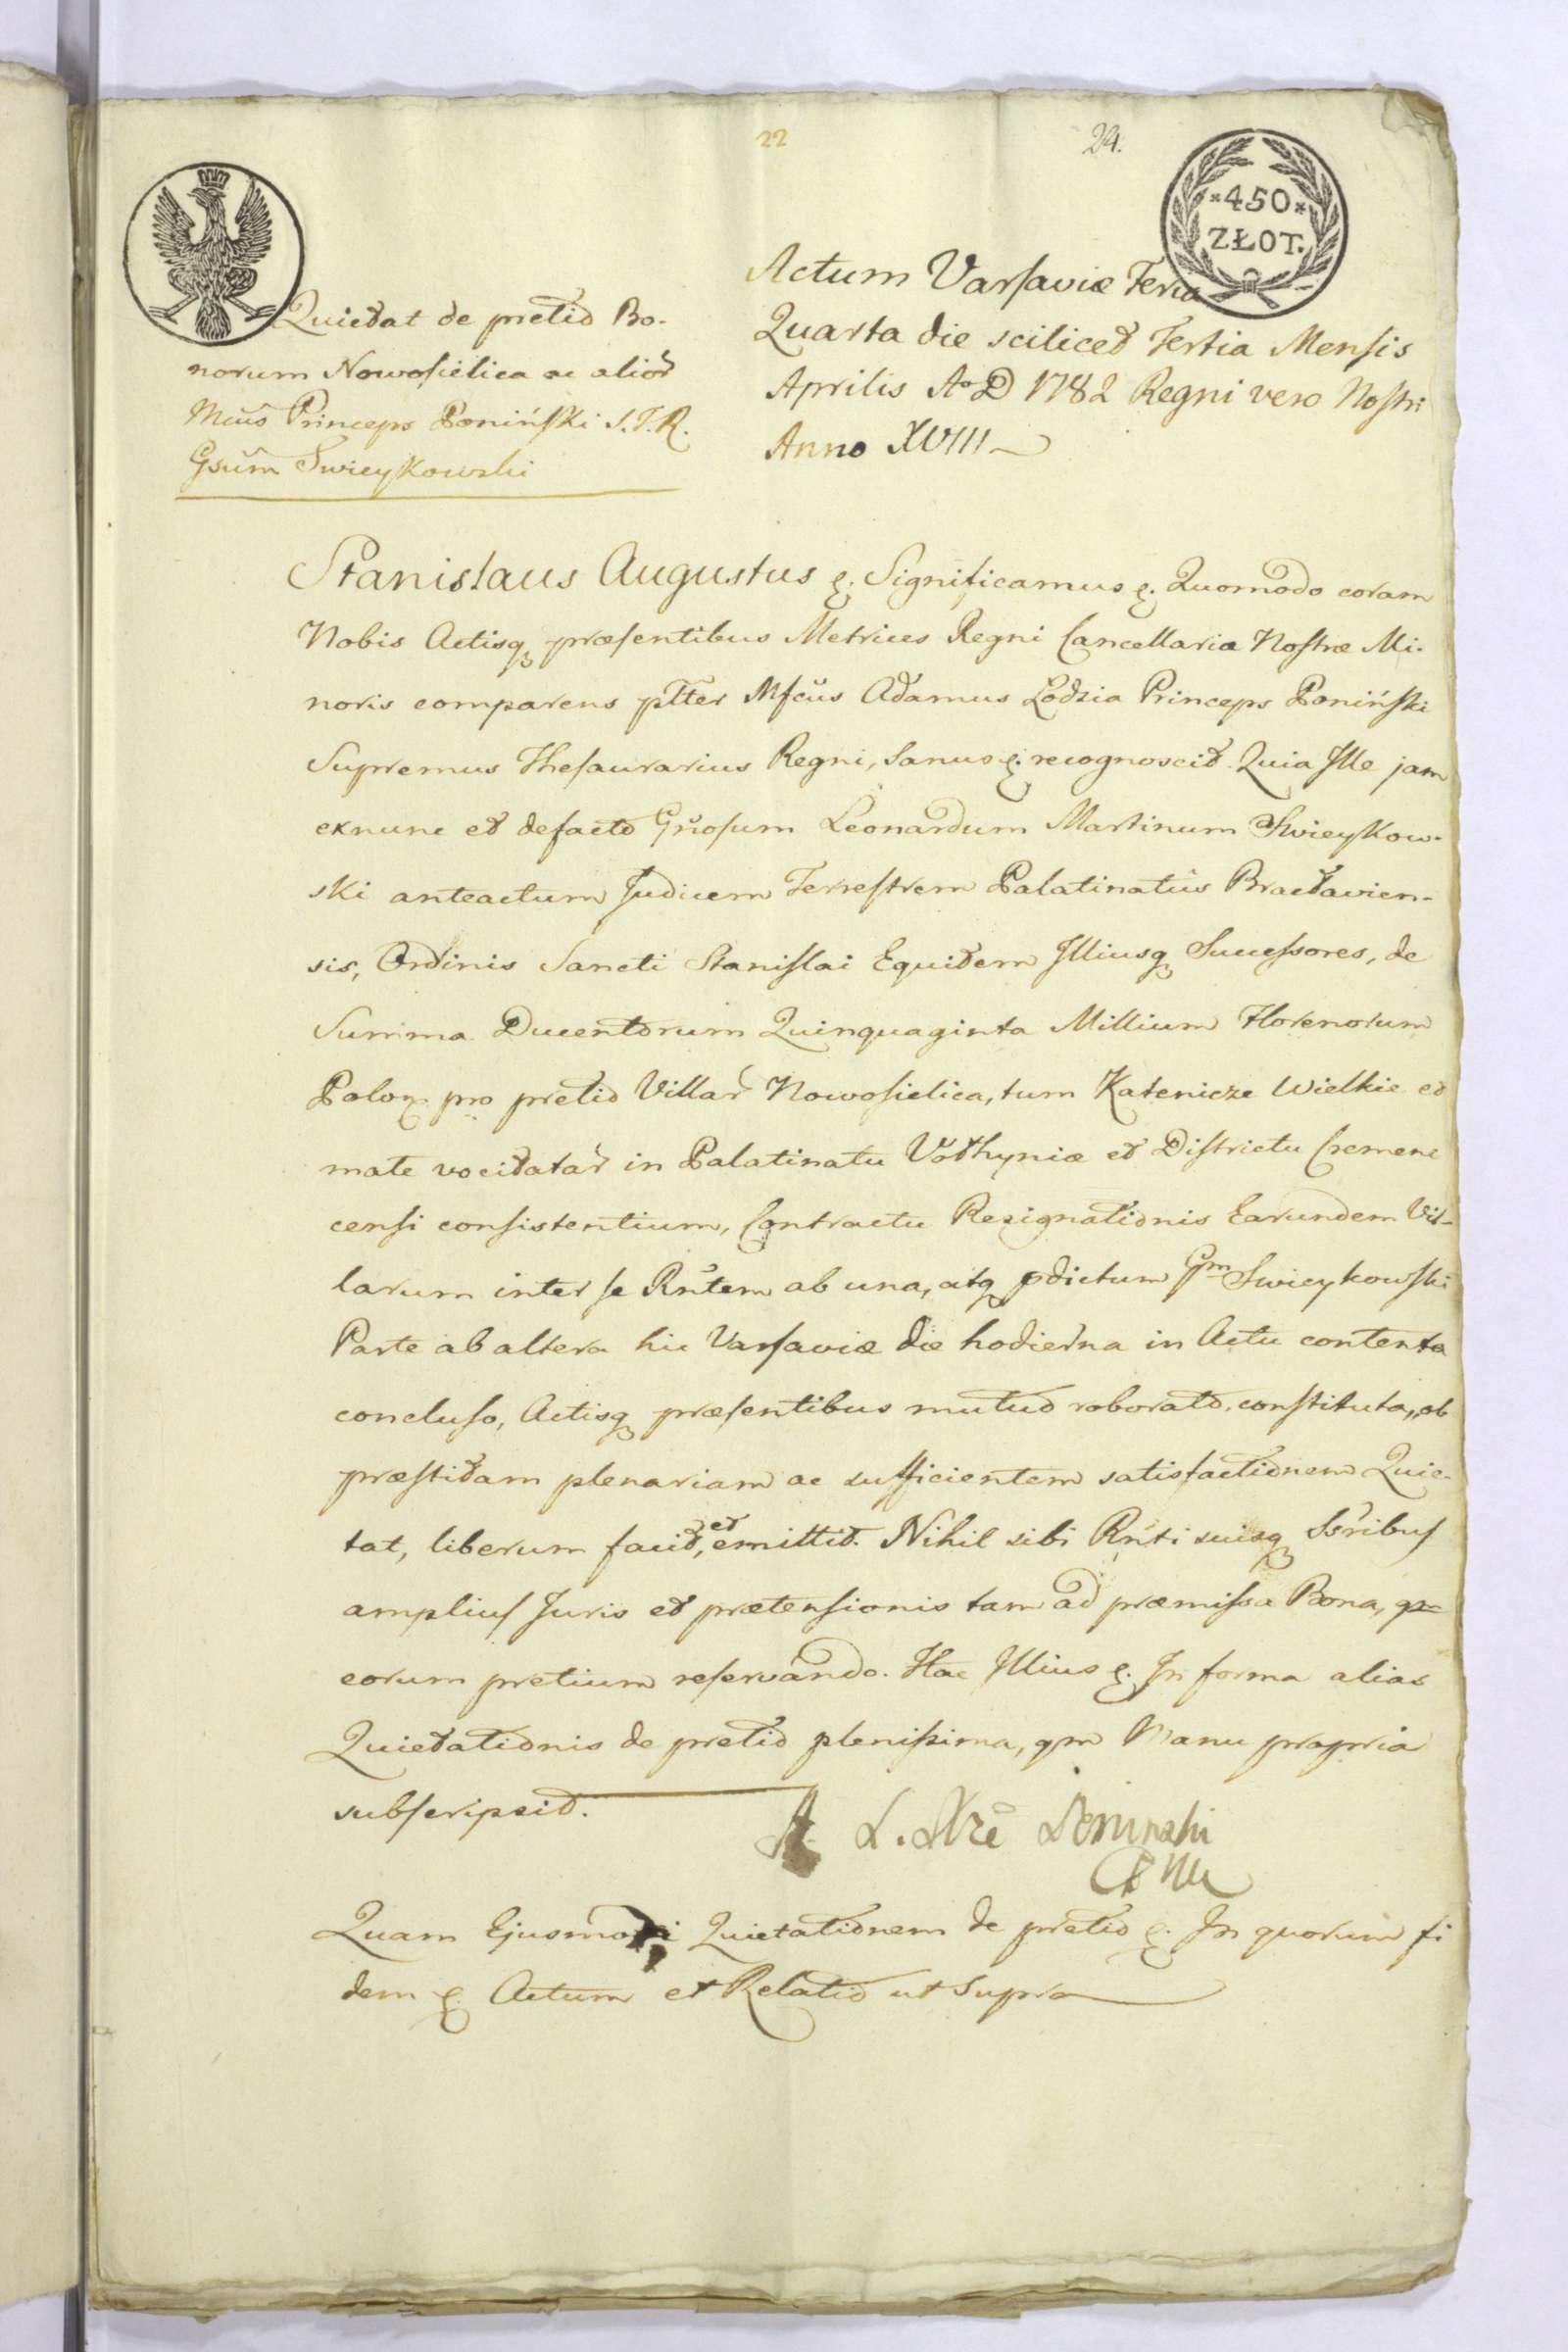 22
24.
*450*
ZŁOT.
Quietat de pretio Bo-
norum Nowosielica ac alior
Mcus Princeps Poniński S.T.R.
Gsum Swieykowski
Actum Varsaviæ Feria
Quarta die scilicet Tertia Mensis
Aprilis Ao D 1782 Regni vero Nostri
Anno XVIII
Stanislaus Augustus &. Significamus &. Quomodo coram
Nobis Actisq præsentibus Metrices Regni Cancellaria Nostræ Mi-
noris comparens pltter Mfcus Adamus Lodzia Princeps Poniński
Supremus Thesaurarius Regni, Sanus &. recognoscit Quia Ille jam
exnunc et defacto Gnosum Leonardum Martinum Swieykow-
ski anteactum Judicem Terrestrem Palatinatus Bractavien-
sis, Ordinis Sancti Stanislai Equitem Illiusq Successores, de
Summa Ducentorum Quinquaginta Millium Florenorum
Polog pro pretio Villar Nowosielica, tum Katenicze Wielkie et
mate vocitatar in Palatinatu Volhyniæ et Districtu Cremene
censi consistentium, Contractu Resignationis Earundem Vil-
larum inter se Rntem ab una, atq pdictum Gm Swieykowski
Parte ab altera hic Varsaviæ die hodierna in Actu contento
concluso, Actisq præsentibus mutuo roborato, constituta, ob
præstitam plenariam ac sufficientem satisfactionem Quie-
tat, liberum facit, et emittit. Nihil sibi Rnti suisq Ssribus
amplius Juris et prætensionis tam ad præmissa Bona, qm
eorum pretium reservando. Hac Illius &. In forma alias
Quietationis de pretio plenissima, qm Manu propria
subscripsit.
A. L. Xże Poninski
PWK
Quam Ejusmodi Quietationem de pretio &. In quorum fi
dem &. Actum et Relatio ut Supra